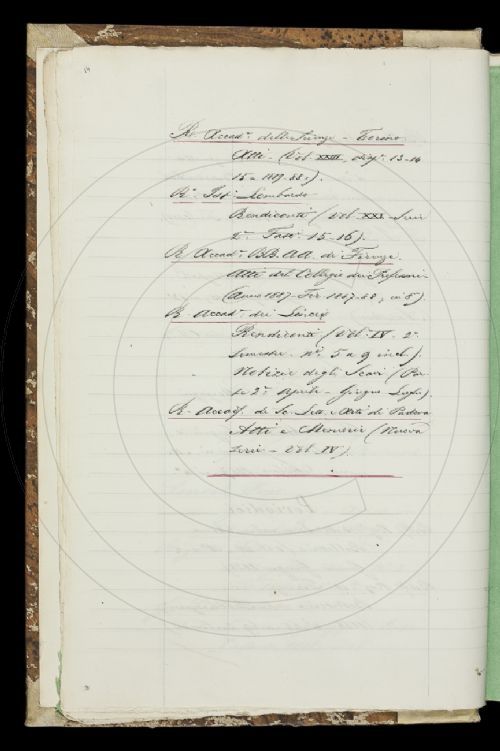 R. Accad.ª delle Scienze - Torino
Atti - (Vol. XXIII, disp.ª 13-14
15 a 1887-88.).
R.º Ist.º Lombardo
Rendiconti (Vol. XXI - Serie
2.ª Fasc.º 15-16).
R. Accad.ª BB. AA. di Firenze.
Atti del Collegio dei Professori
(Anno 1887-
R. Accad.ª dei Lincei
Rendiconti (Vol. IV - 2.º
Semestre - N.º 5 a 9 incl.).
Notizie degli Scavi (
Aprile - Giugno - Luglio).
R. Accad. di Sc. Lett. e Arti di Padova
Atti e Memorie (Nuova
Serie - Vol. IV).